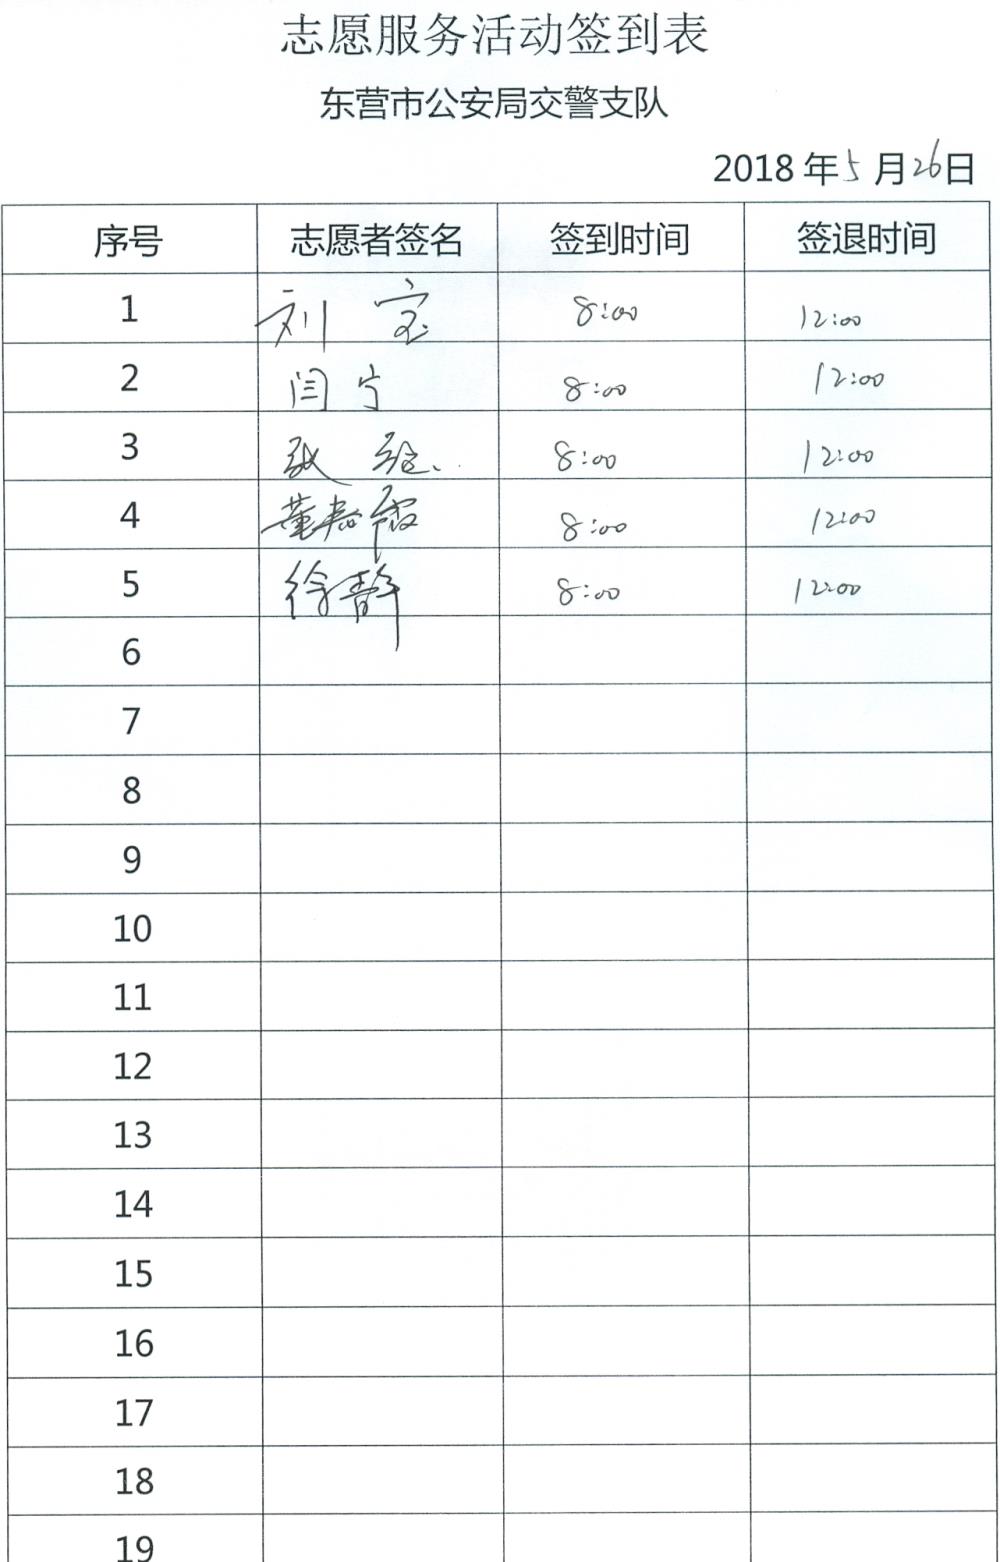 志愿服务活动签到表
东营市公安局交警支队
2018 年 5 月 26 日
序号 志愿者签名 签到时间 签退时间
1 刘宝 8:00 12:00
2 闫宁 8:00 12:00
3 张 8:00 12:00
4 董春霞 8:00 12:00
5 徐静 8:00 12:00
6
7
8
9
10
11
12
13
14
15
16
17
18
19